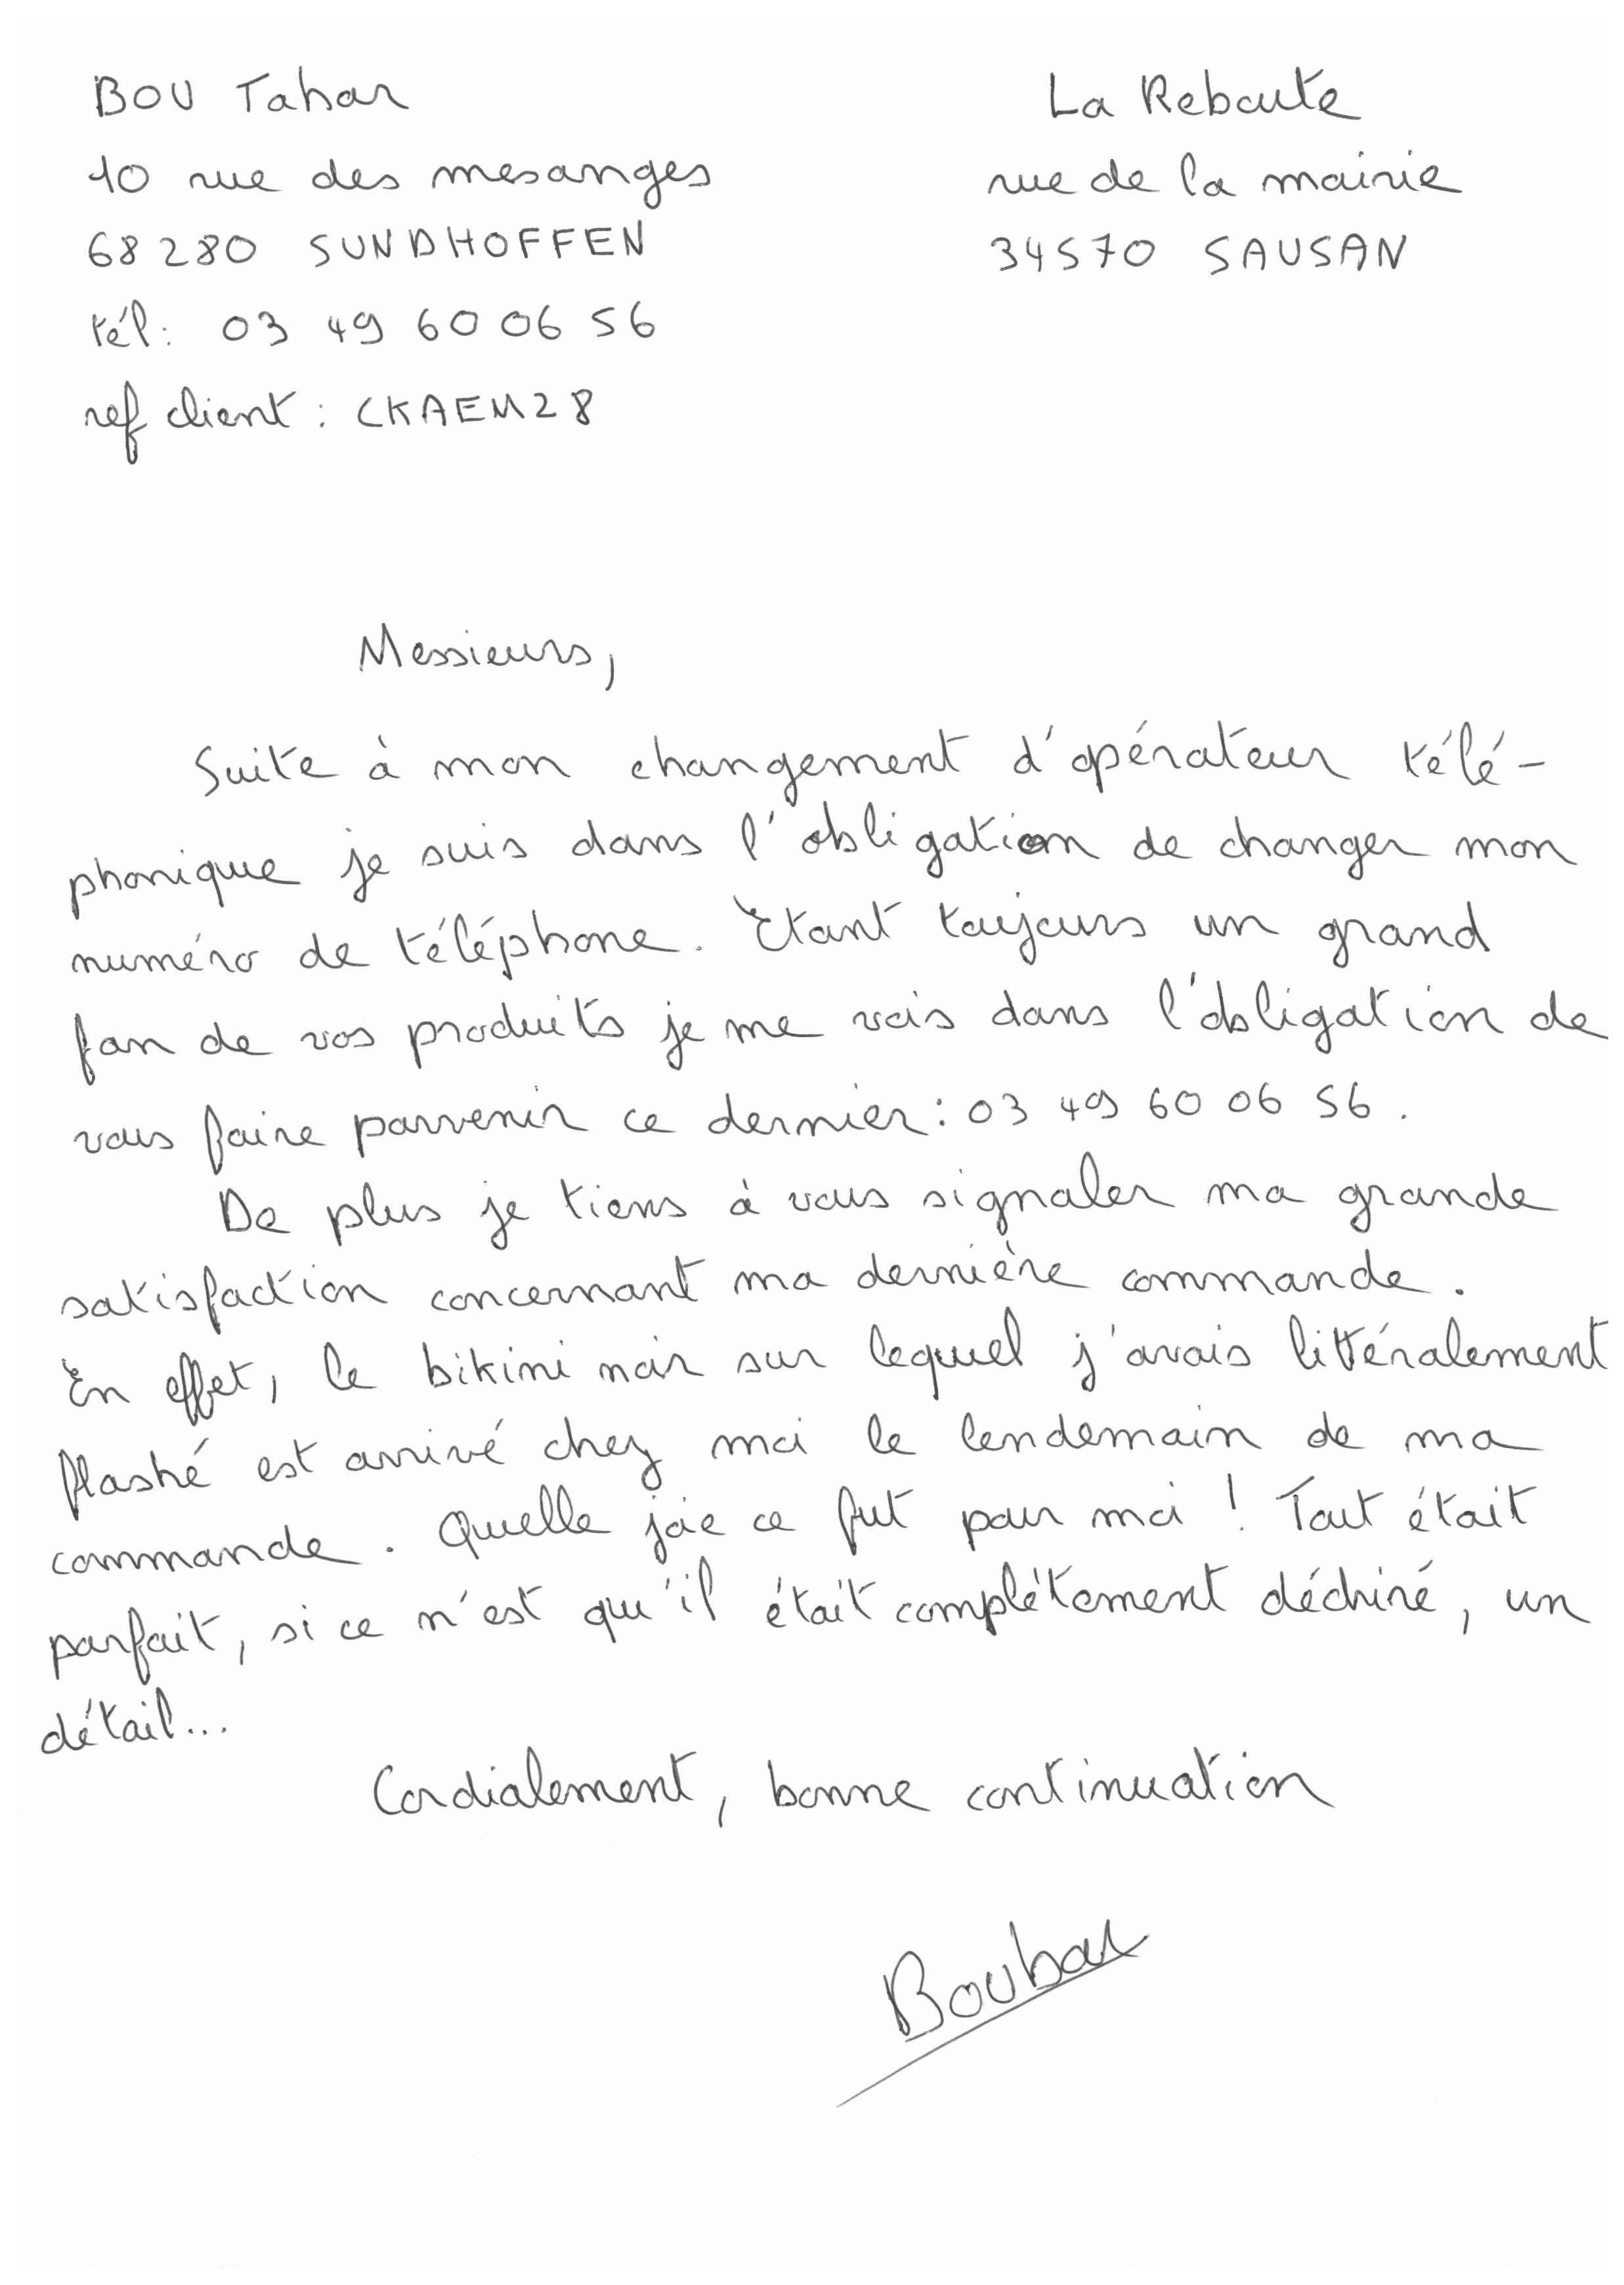 BOU Tahar
10 rue des mesanges
68280 SUNDHOFFEN
tél: 03 49 60 06 56
ref client : CKAEM28
La Reboute
rue de la mairie
34570 SAUSAN
Messieurs,
Suite à mon changement d'opérateur télé-
phonique je suis dans l'obligation de changer mon
numéro de téléphone. Etant toujours un grand
fan de vos produits je me vois dans l'obligation de
vous faire parvenir ce dernier : 03 49 60 06 56.
De plus je tiens à vous signaler ma grande
satisfaction concernant ma dernière commande.
En effet, le bikini noir sur lequel j'avais littéralement
flashé est arrivé chez moi le lendemain de ma
commande. Quelle joie ce fut pour moi ! Tout était
parfait, si ce n'est qu'il était complètement déchiré, un
détail...
Cordialement, bonne continuation
Bouhar